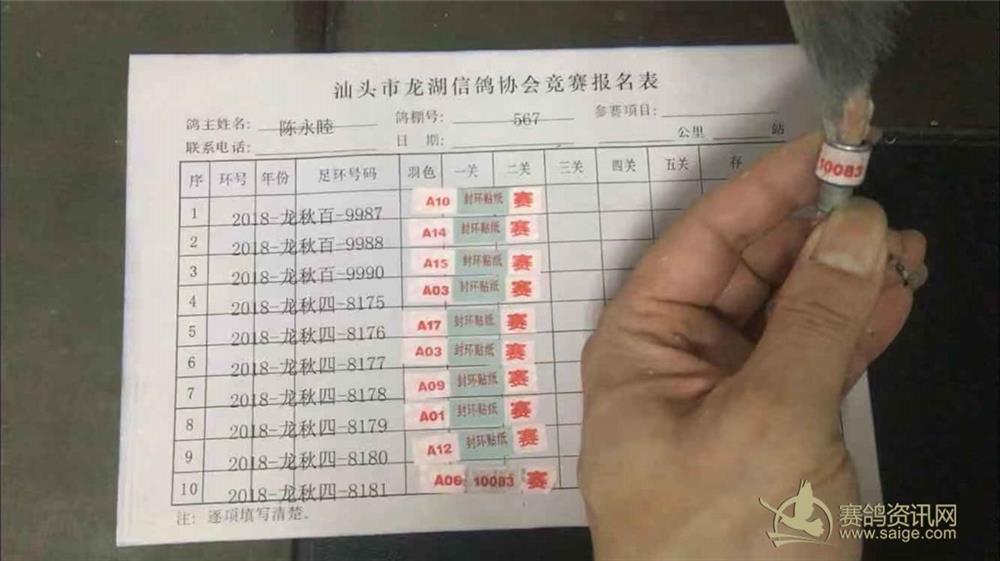 汕头市龙湖信鸽协会竞赛报名表
鸽主姓名: 陈永睦 鸽棚号: 567 参赛项目:
联系电话: 日 期: 公里 站
序 环号 年份 足环号码 羽色 一关 二关 三关 四关 五关 存
1 2018-龙秋百-9987 A10 封环贴纸 赛
2 2018-龙秋百-9988 A14 封环贴纸 赛
3 2018-龙秋百-9990 A15 封环贴纸 赛
4 2018-龙秋四-8175 A03 封环贴纸 赛
5 2018-龙秋四-8176 A17 封环贴纸 赛
6 2018-龙秋四-8177 A03 封环贴纸 赛
7 2018-龙秋四-8178 A09 封环贴纸 赛
8 2018-龙秋四-8179 A01 封环贴纸 赛
9 2018-龙秋四-8180 A12 封环贴纸 赛
10 2018-龙秋四-8181 A06 10083 赛
注: 逐项填写清楚。
10083
赛鸽资讯网
www.saige.com